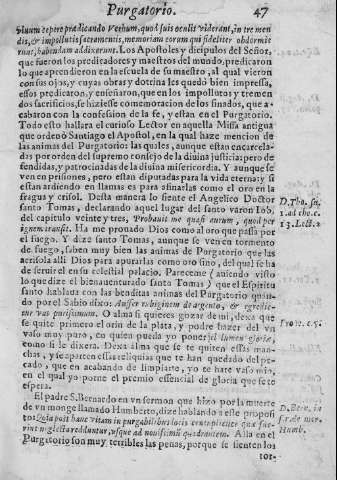 Purgatorio. 47
Viuum depere prædicando Verbum, quod suis oculis viderant, in tremen
dis, & impollutis sacramentis, memoriam eorum qui fideliter obdormie
runt, habendam addixerunt. Los Apostoles y dicipulos del Señor,
que fueron los predicadores y maestros del mundo, predicaron
lo que aprendieron en la escuela de su maestro, al qual vieron
con sus ojos, y cuyas obras y dotrina les quedò bien impressa,
essos predicaron, y enseñaron, que en los impollutos y tremen
dos sacrificios, se hiziesse comemoracion de los finados, que a-
cabaron con la confession de la fe, y estan en el Purgatorio.
Todo esto hallara el curioso Lector en aquella Missa antigua
que ordenò Santiago el Apostol, en la qual haze mencion de
las animas del Purgatorio: las quales, aunque estan encarcela-
das por orden del supremo consejo de la diuina justicia: pero de
fendidas, y patrocinadas de la diuina misericordia. Y aunque se
ven en prisiones, pero estan diputadas para la vida eterna: y si
estan ardiendo en llamas es para afinarlas como el oro en la
fragua y crisol. Desta manera lo siente el Angelico Doctor
santo Tomas, declarando aquel lugar del santo varon Iob,
del capitulo veinte y tres, Probauit me quasi aurum, quod per
ignem transit. Ha me prouado Dios como al oro que passa por
el fuego. Y dize santo Tomas, aunque se ven en tormento
de fuego, saben muy bien las animas de Purgatorio que las
acrisola alli Dios para apurarlas como oro fino, del qual se ha
de seruir el en su celestial palacio. Pareceme (auiendo visto
lo que dize el bienauenturado santo Tomas) que el Espiritu
santo hablaua con las benditas animas del Purgatorio quan-
do por el Sabio dixo: Aufer rubiginem de argento, & egredie-
tur vas purissimum. O alma si quieres gozar de mi, dexa que
se quite primero el orin de la plata, y podre hazer del vn
vaso muy puro, en quien pueda yo poner el lumen gloriæ,
como si le dixera. Dexa alma que se te quiten essas man-
chas, y se aparten essas reliquias que te han quedado del pe-
cado, que en acabando de limpiarte, yo te hare vaso mio,
en el qual yo porne el premio essencial de gloria que te
espera.
El padre S. Bernardo en vn sermon que hizo por la muerte
de vn monge llamado Humberto, dize hablando a este proposi
to: Quia post hanc vitam in purgabilibus locis centupliciter quæ fue-
rint neglecta redduntur, vsque ad nouissimum quadrantem. Alla en el
Purgatorio son muy terribles las penas, porque se sienten los
tor-
D. Tho. su.
1. ad the. c.
13. Lect. 2
Prou. c. 25.
D. Bern. in
ser. de mor.
Humb.